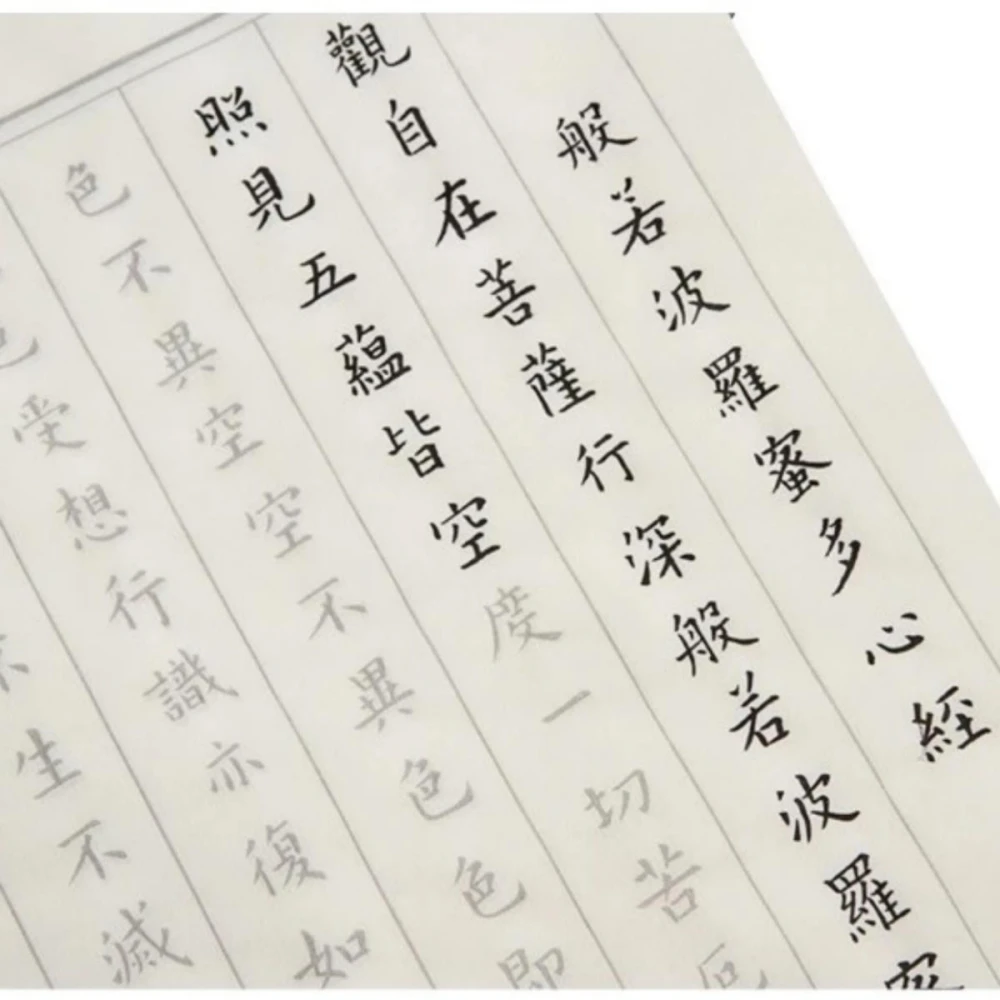 般若波羅蜜多心經
觀自在菩薩行深般若波羅
照見五蘊皆空度一切苦厄
色不異空空不異色色即
色受想行識亦復如
生不滅